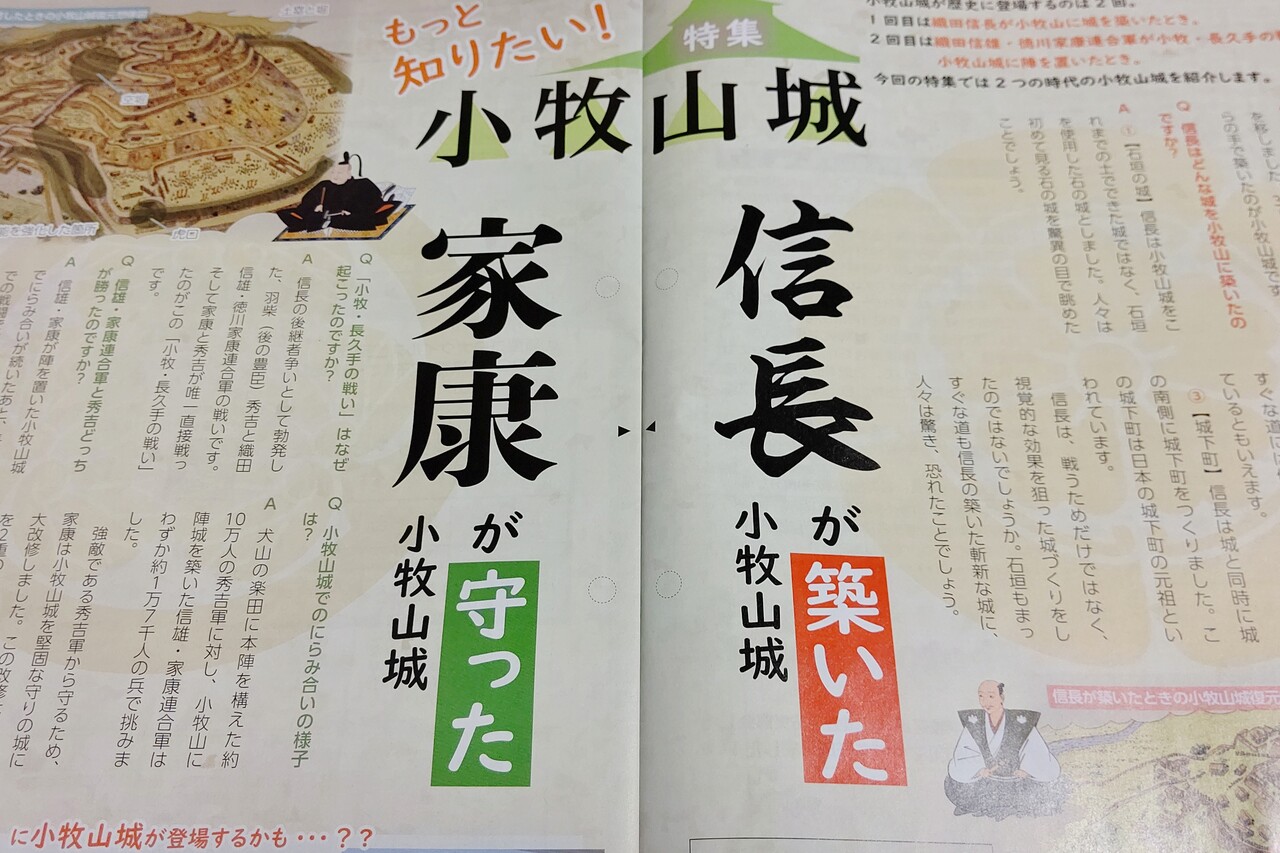 もっと
知りたい!
特集
小牧山城
小牧山城が歴史に登場するのは2回。
1回目は織田信長が小牧山に城を築いたとき。
2回目は織田信雄・徳川家康連合軍が小牧・長久手の
小牧山城に陣を置いたとき。
今回の特集では2つの時代の小牧山城を紹介します。
信長が
築いた
小牧山城
を移しました
らの手で築いたのが小牧山城です
Q 信長はどんな城を小牧山に築いたの
ですか?
A
①【石垣の城】信長は小牧山城をこ
れまでの土でできた城ではなく、石垣
を使用した石の城としました。人々は
初めて見る石の城を驚異の目で眺めた
ことでしょう。
すぐな道は
ているともいえます。
③【城下町】信長は城と同時に城
の南側に城下町をつくりました。こ
の城下町は日本の城下町の元祖とい
われています。
信長は、戦うためだけではなく、
視覚的な効果を狙った城づくりをし
たのではないでしょうか。石垣もまっ
すぐな道も信長の築いた斬新な城に、
人々は驚き、恐れたことでしょう。
信長が築いたときの小牧山城復元
家康が
守った
小牧山城
土塁と堀
空堀
を強化した箇所
虎口
Q 「小牧・長久手の戦い」はなぜ
起こったのですか?
A
信長の後継者争いとして勃発し
た、羽柴(後の豊臣)秀吉と織田
信雄・徳川家康連合軍の戦いです。
そして家康と秀吉が唯一直接戦っ
たのがこの「小牧・長久手の戦い」
です。
Q 信雄・家康連合軍と秀吉どっち
が勝ったのですか?
A
信雄・家康が陣を置いた小牧山城
でにらみ合いが続いたあと、
での戦闘を
Q 小牧山城でのにらみ合いの様子
は?
A
犬山の楽田に本陣を構えた約
10万人の秀吉軍に対し、小牧山に
陣城を築いた信雄・家康連合軍は
わずか約1万7千人の兵で挑みま
した。
強敵である秀吉軍から守るため、
家康は小牧山城を堅固な守りの城に
大改修しました。この改修
を2重の
に小牧山城が登場するかも・・・??